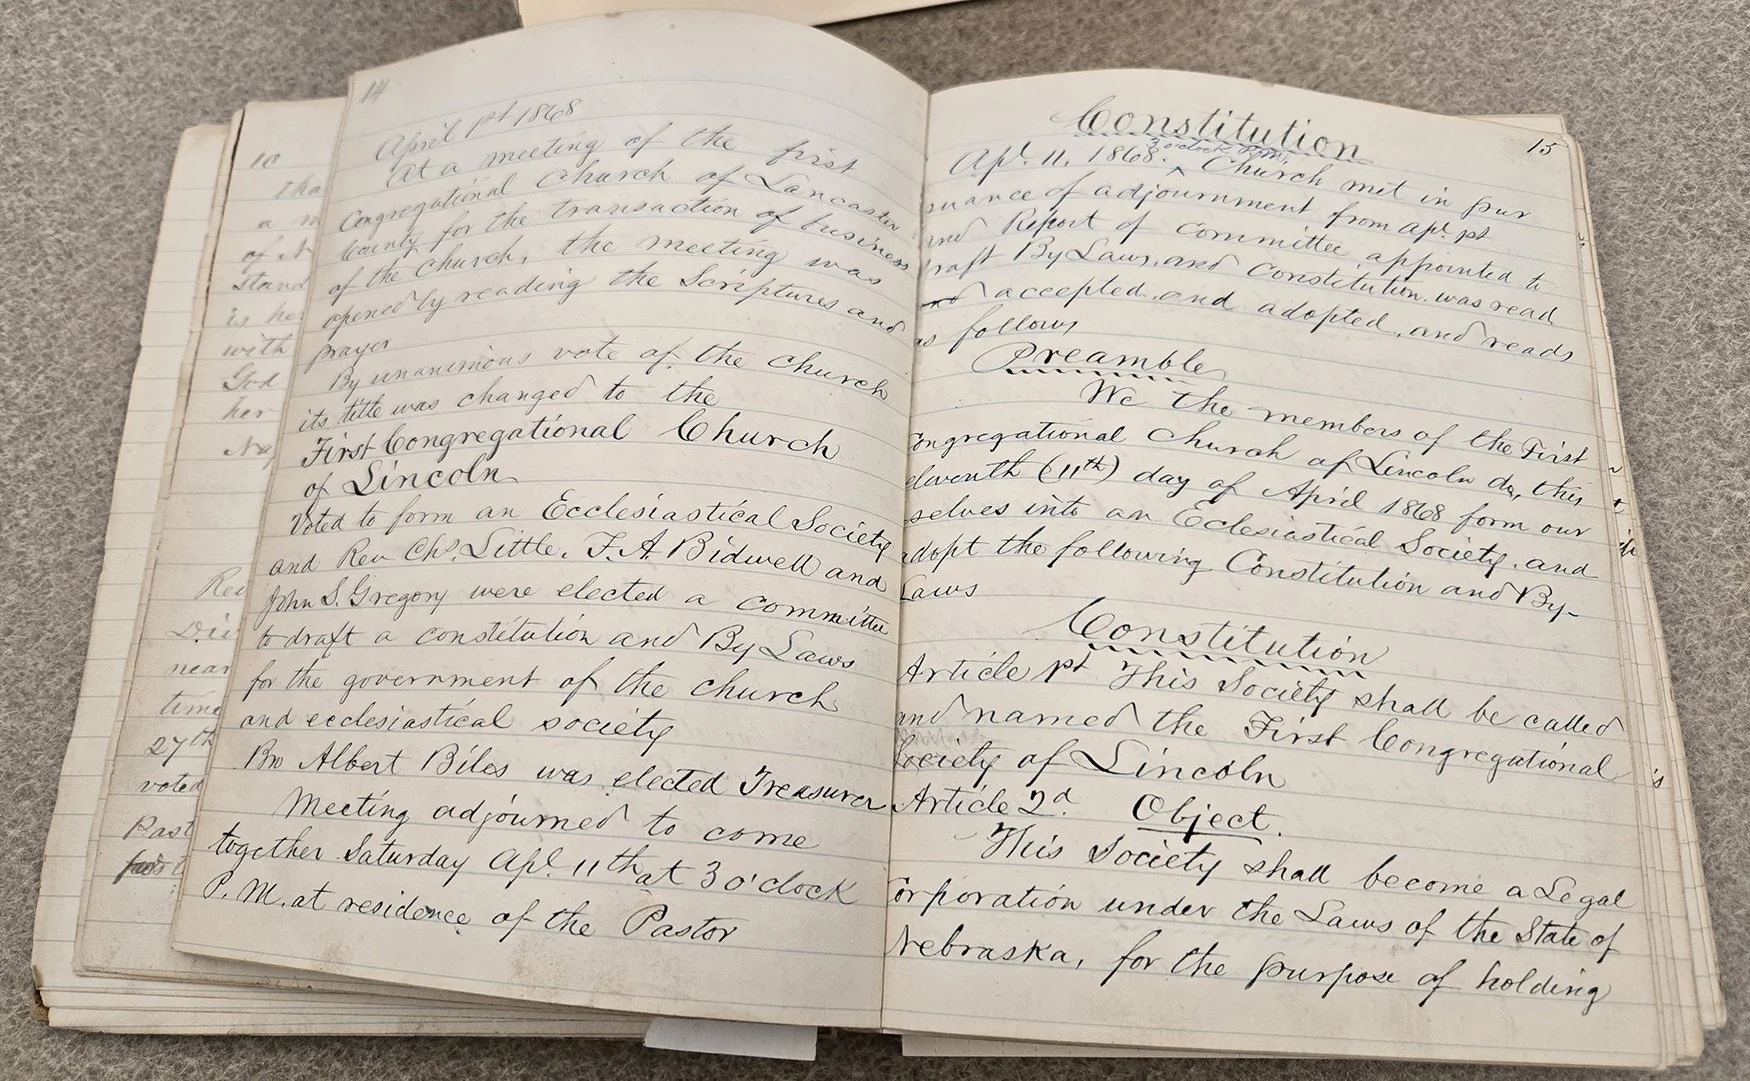 10
tha
a m
of N
stand
is her
with
God
her
Rev
Die
near
time
27th
voted
Past
14
April 1st 1868
At a meeting of the first
Congregational Church of Lancaster
County for the transaction of business
of the church, the meeting was
opened by reading the Scriptures and
prayer
By unanimous vote of the church
its title was changed to the
First Congregational Church
of Lincoln
Voted to form an Ecclesiastical Society
and Rev Chs. Little, F. A. Bidwell and
John S. Gregory were elected a committee
to draft a constitution and By Laws
for the government of the church
and ecclesiastical society
Bro Albert Biles was elected Treasurer
Meeting adjourned to come
together Saturday Apl. 11th at 3 o'clock
P. M. at residence of the Pastor
Constitution
15
3 o'clock P.M.
Apl. 11, 1868. ^ Church met in pur
suance of adjournment from apl. 1st
and Report of committee appointed to
draft By Laws, and Constitution, was read
and accepted, and adopted, and reads
as follows
Preamble
We the members of the First
Congregational Church of Lincoln do, this
eleventh (11th) day of April 1868 form our
selves into an Ecclesiastical Society, and
adopt the following Constitution and By-
Laws
Constitution
Article 1st This Society shall be called
and named the First Congregational
Society of Lincoln
Article 2d. Object.
This Society shall become a Legal
Corporation under the Laws of the State of
Nebraska, for the purpose of holding